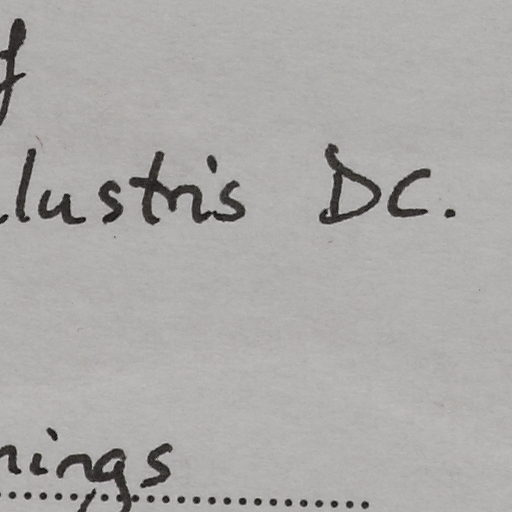 f
lustris DC.
nings